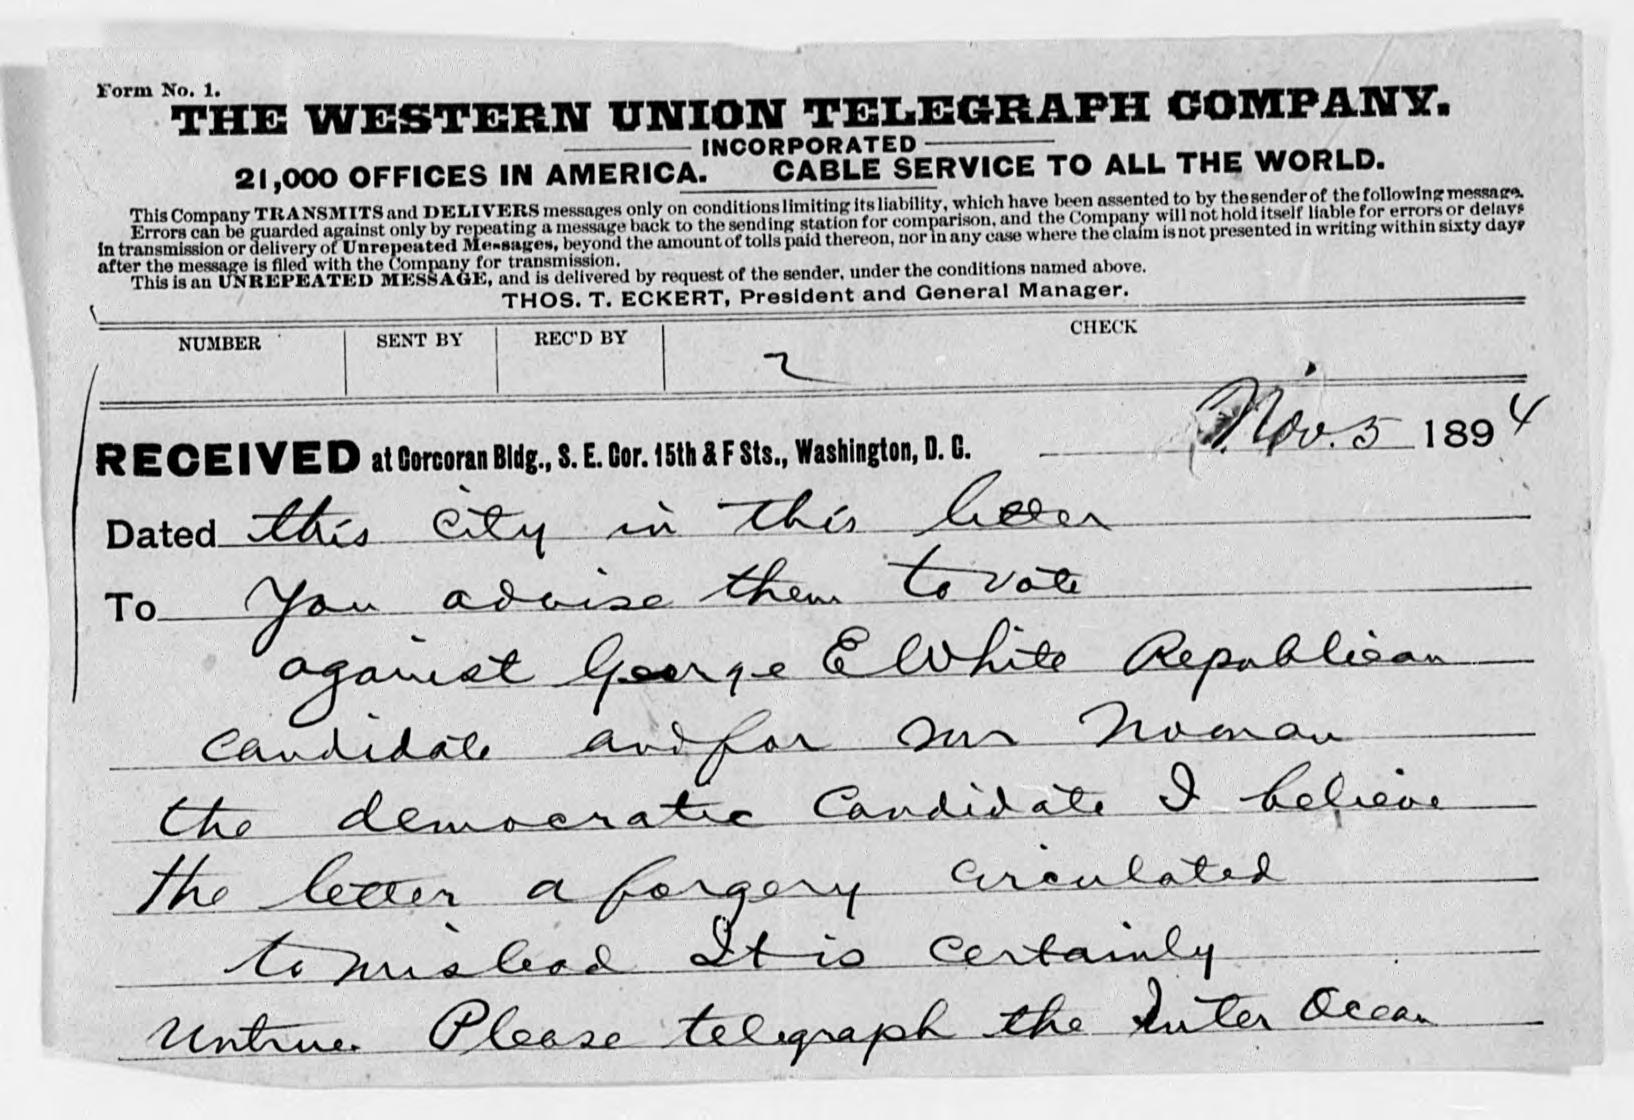 Form No. 1.
THE WESTERN UNION TELEGRAPH COMPANY.
INCORPORATED
21,000 OFFICES IN AMERICA. CABLE SERVICE TO ALL THE WORLD.
This Company TRANSMITS and DELIVERS messages only on conditions limiting its liability, which have been assented to by the sender of the following message.
Errors can be guarded against only by repeating a message back to the sending station for comparison, and the Company will not hold itself liable for errors or delays
in transmission or delivery of Unrepeated Messages, beyond the amount of tolls paid thereon, nor in any case where the claim is not presented in writing within sixty days
after the message is filed with the Company for transmission.
This is an UNREPEATED MESSAGE, and is delivered by request of the sender, under the conditions named above.
THOS. T. ECKERT, President and General Manager.
NUMBER SENT BY REC'D BY CHECK
2
Nov. 5 1894
RECEIVED at Corcoran Bldg., S. E. Cor. 15th & F Sts., Washington, D. C.
Dated this city in this letter
To You advise them to vote
against George E White Republican
candidate and for Mr Noonan
the democratic Candidate I believe
the letter a forgery circulated
to mislead It is certainly
untrue. Please telegraph the Inter Ocean